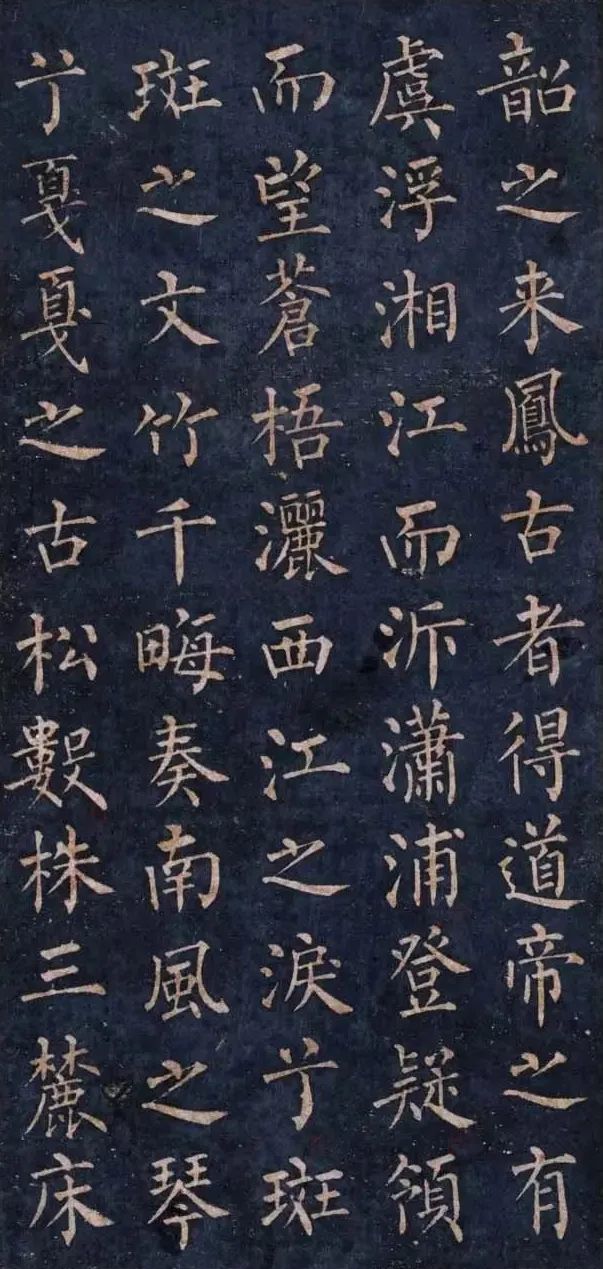 韶之来鳳古者得道帝之有
虞浮湘江而泝瀟浦登疑領
而望蒼梧灑西江之淚兮斑
斑之文竹千畮奏南風之琴
兮戞戞之古松數株三麓床